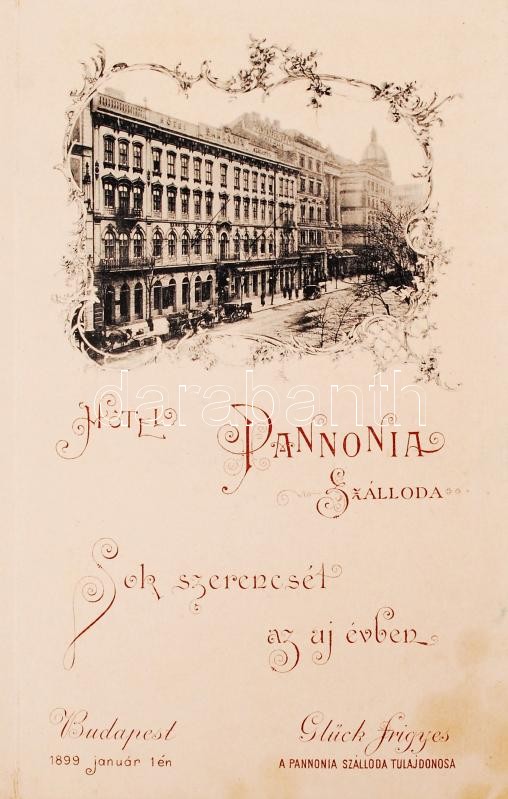 HÔTEL PANNONIA
SZÁLLODA
Sok szerencsét
az uj évben
Budapest
1899 január 1én
Glück Frigyes
A PANNONIA SZÁLLODA TULAJDONOSA
darabanth